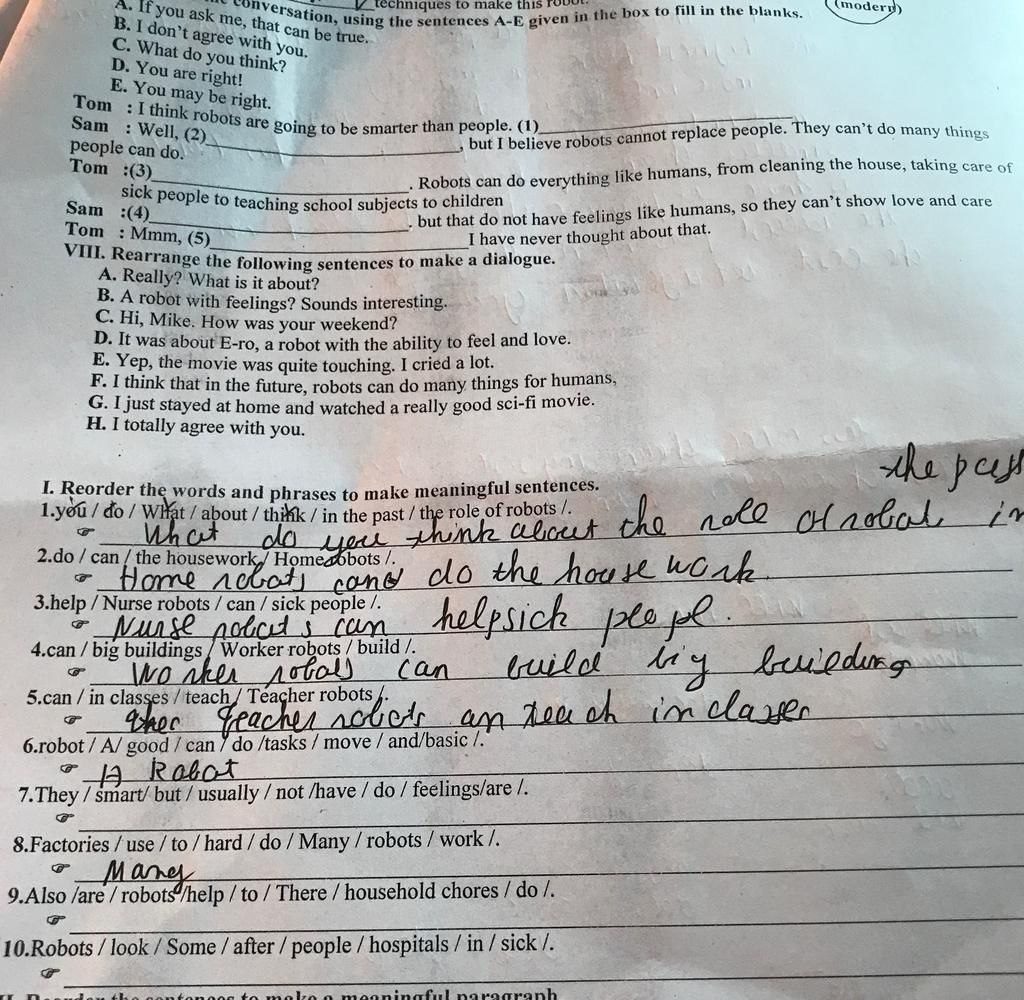 techniques to make this robot.
(modern)
conversation, using the sentences A-E given in the box to fill in the blanks.
A. If you ask me, that can be true.
B. I don't agree with you.
C. What do you think?
D. You are right!
E. You may be right.
Tom : I think robots are going to be smarter than people. (1)
Sam : Well, (2) , but I believe robots cannot replace people. They can't do many things
people can do.
Tom :(3) . Robots can do everything like humans, from cleaning the house, taking care of
sick people to teaching school subjects to children
Sam :(4) . but that do not have feelings like humans, so they can't show love and care
Tom : Mmm, (5) I have never thought about that.
VIII. Rearrange the following sentences to make a dialogue.
A. Really? What is it about?
B. A robot with feelings? Sounds interesting.
C. Hi, Mike. How was your weekend?
D. It was about E-ro, a robot with the ability to feel and love.
E. Yep, the movie was quite touching. I cried a lot.
F. I think that in the future, robots can do many things for humans,
G. I just stayed at home and watched a really good sci-fi movie.
H. I totally agree with you.
the past
I. Reorder the words and phrases to make meaningful sentences.
1.you / do / What / about / think / in the past / the role of robots /.
What do you think about the role of robot in
2.do / can / the housework / Home robots /.
Home robots can do the house work.
3.help / Nurse robots / can / sick people /.
Nurse robots can help sick peopl.
4.can / big buildings / Worker robots / build /.
Worker robots can build big building
5.can / in classes / teach / Teacher robots /.
Teacher robots an teach in classes
6.robot / A/ good / can / do /tasks / move / and/basic /.
A Robot
7.They / smart/ but / usually / not /have / do / feelings/are /.
8.Factories / use / to / hard / do / Many / robots / work /.
Many
9.Also /are / robots /help / to / There / household chores / do /.
10.Robots / look / Some / after / people / hospitals / in / sick /.
II. Reorder the sentences to make a meaningful paragraph